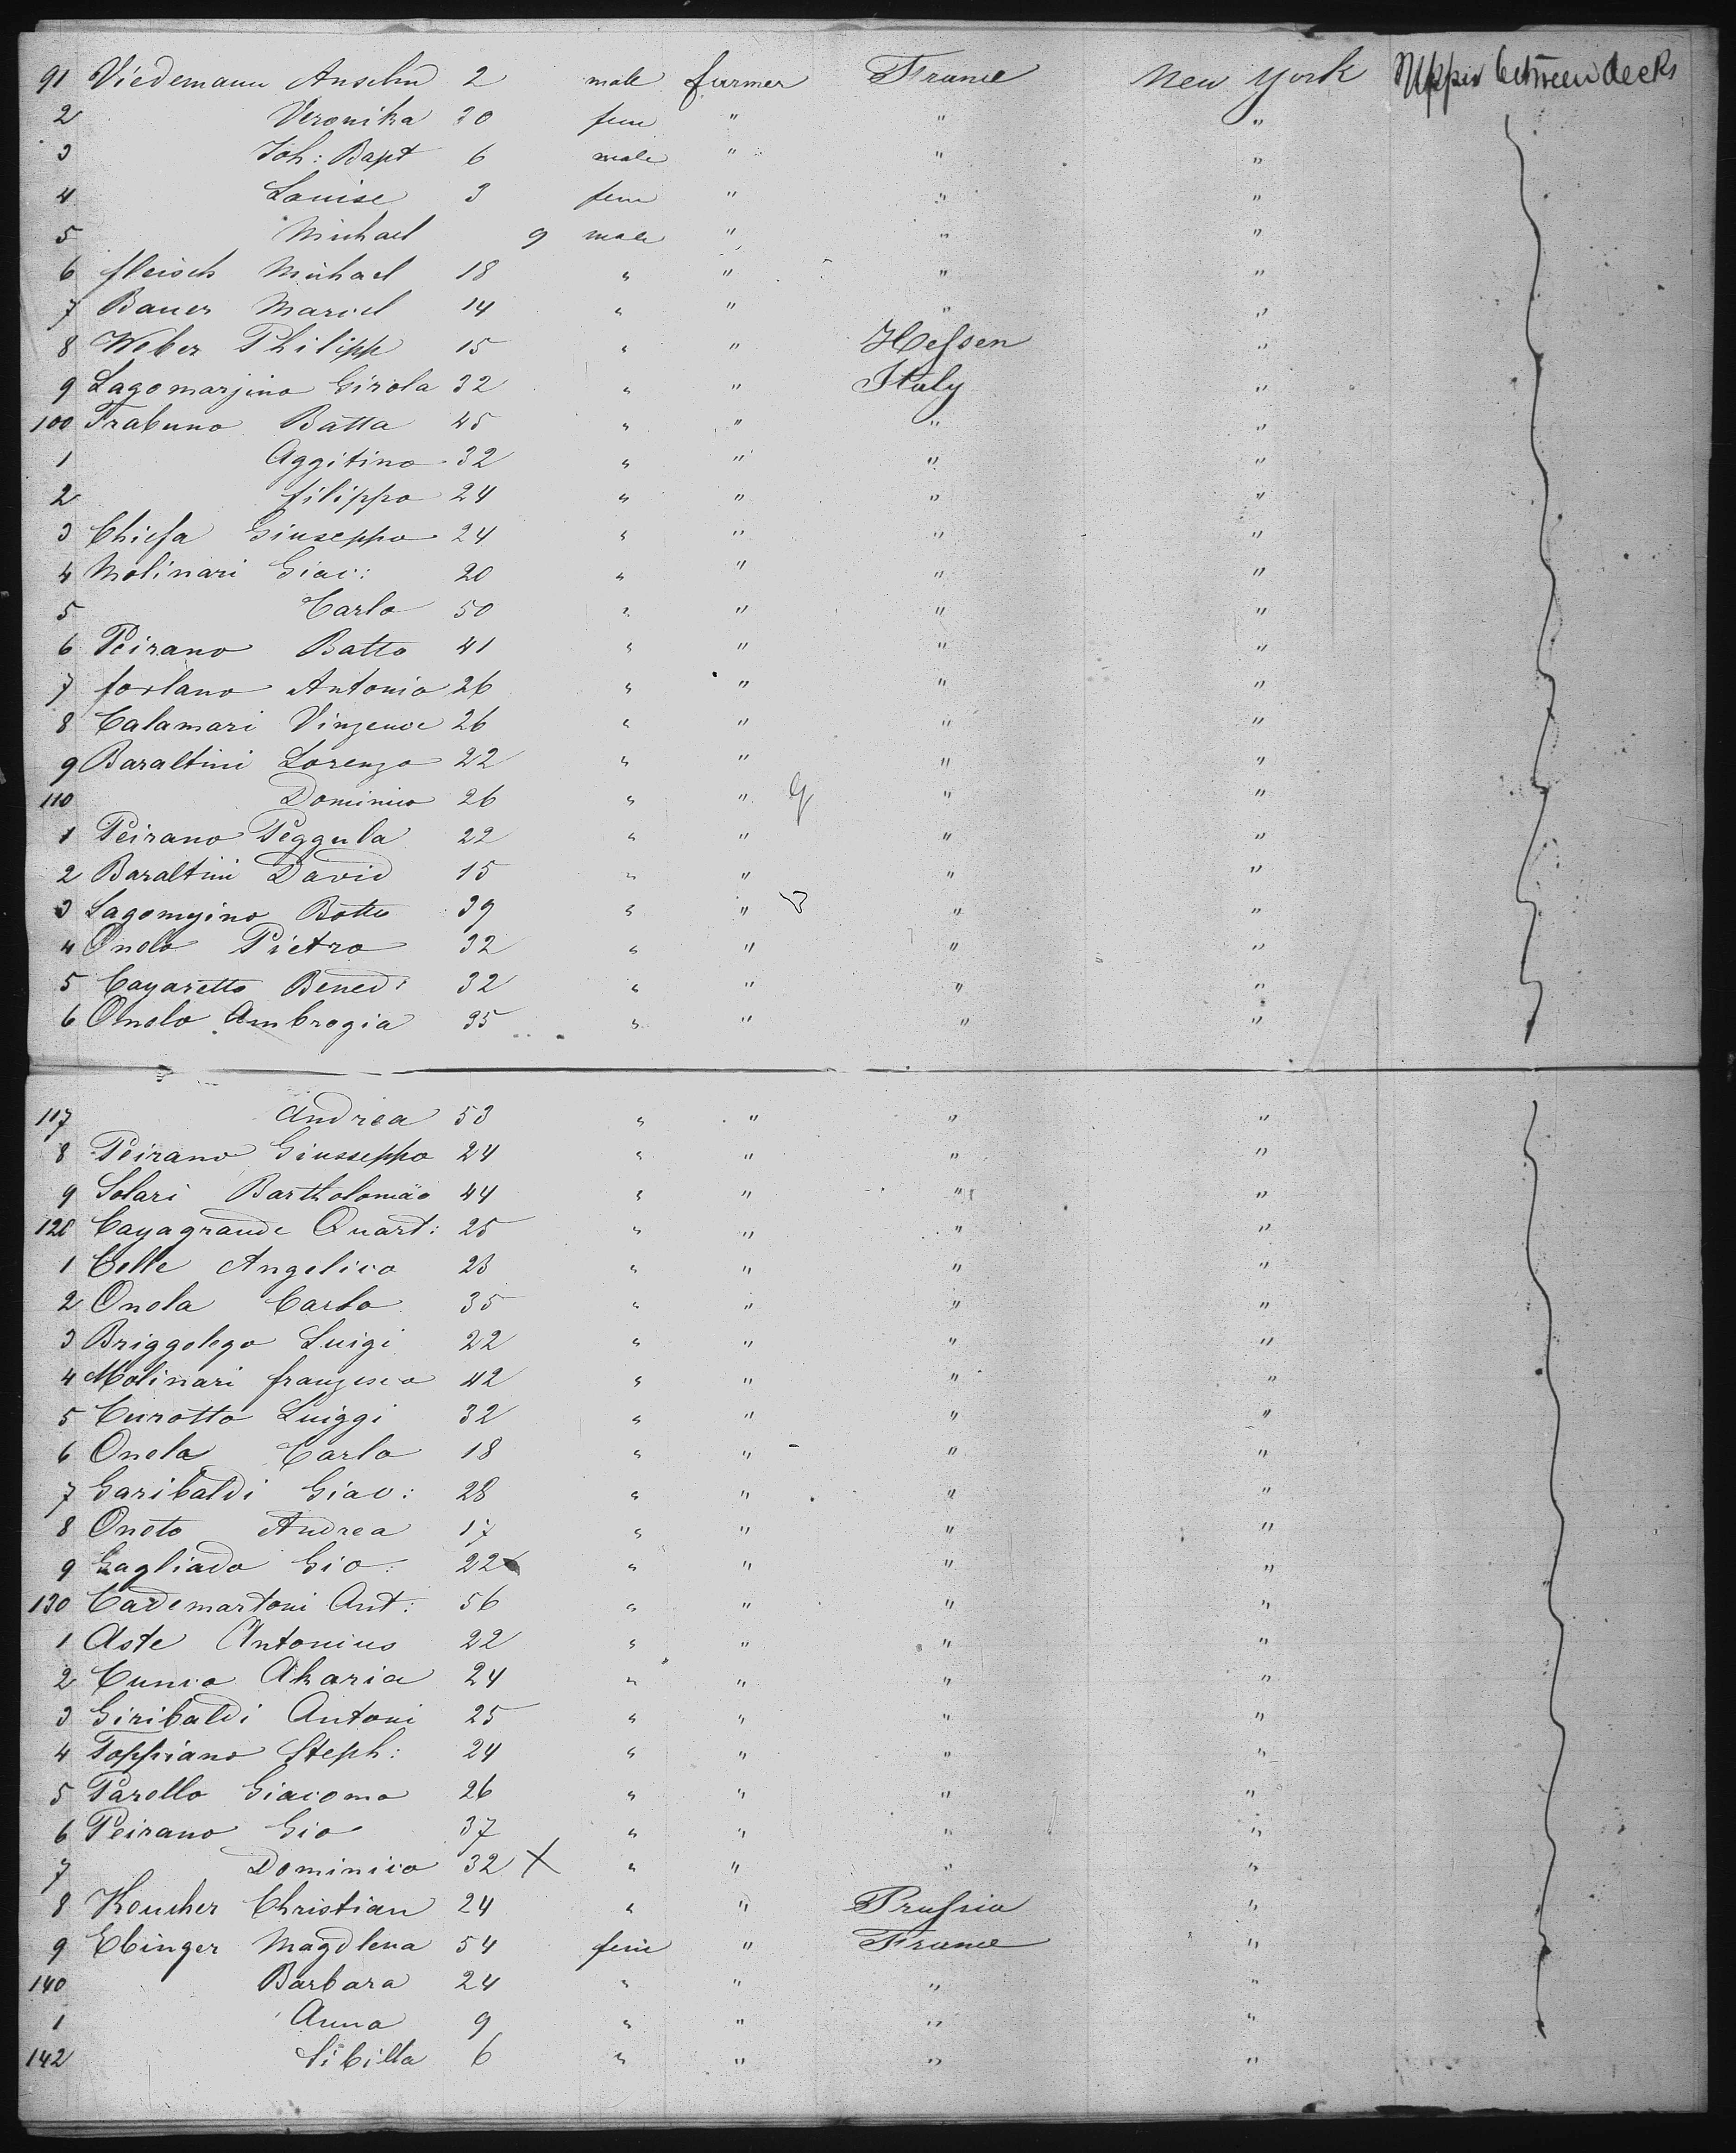 91 Viedemann Anselm 2 male farmer France New York Upper between decks
2 Veronika 30 fem " " "
3 Joh: Bapt 6 male " " "
4 Louise 3 fem " " "
5 Michael 9 male " " "
6 fleisch Michael 18 " " " "
7 Bauer Marcel 14 " " " "
8 Weber Philipp 15 " " Hessen "
9 Lagomarjino Girola 32 " " Italy "
100 Trabuno Batta 45 " " " "
1 Aggitino 32 " " " "
2 filippo 24 " " " "
3 Chiesa Giuseppo 24 " " " "
4 Molinari Giac: 20 " " " "
5 Carlo 50 " " " "
6 Peirano Batto 41 " " " "
7 forlano Antonio 26 " " " "
8 Calamari Vinzence 26 " " " "
9 Baraltini Lorenzo 22 " " " "
110 Dominico 26 " " " "
1 Peirano Peggula 22 " " " "
2 Baraltini David 15 " " " "
3 Lagomyino Botto 39 " " " "
4 Onolo Pietro 32 " " " "
5 Cayaretto Bened: 32 " " " "
6 Onolo Ambrogia 35 " " " "
117 Andrea 53 " " " "
8 Peirano Giusseppo 24 " " " "
9 Solari Bartholomäo 44 " " " "
120 Cayagrande Quart: 25 " " " "
1 Celle Angelico 23 " " " "
2 Onola Carlo 35 " " " "
3 Briggolego Luigi 22 " " " "
4 Molinari franzisco 42 " " " "
5 Curotto Luiggi 32 " " " "
6 Onola Carlo 18 " " " "
7 Garibaldi Giac: 28 " " " "
8 Oneto Andrea 17 " " " "
9 Gagliado Gio: 22 " " " "
130 Cademartoni Ant: 56 " " " "
1 Aste Antonius 22 " " " "
2 Cunio Aharia 24 " " " "
3 Giribaldi Antoni 25 " " " "
4 Toppiano Steph: 24 " " " "
5 Parollo Giacomo 26 " " " "
6 Peirano Gio 37 " " " "
7 Dominico 32 X " " " "
8 Koucher Christian 24 " " Prussia "
9 Ebinger Magdlena 54 fem " France "
140 Barbara 24 " " " "
1 Anna 9 " " " "
142 Sibilla 6 " " " "